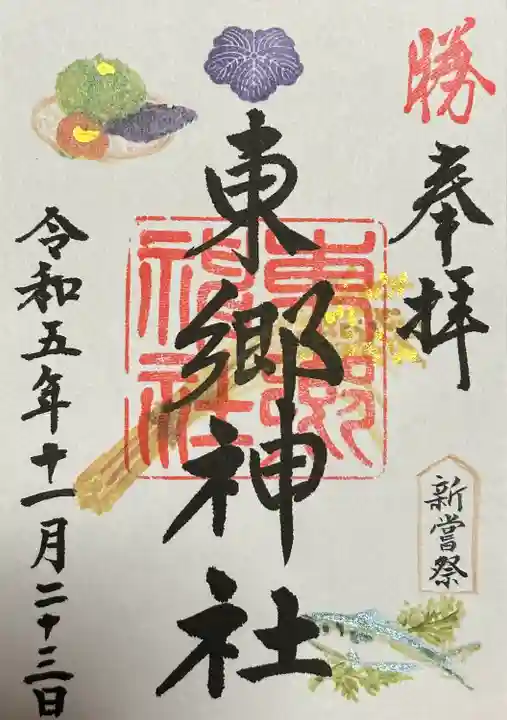 勝
奉拝
新嘗祭
東郷神社
東郷神社
令和五年十一月二十三日